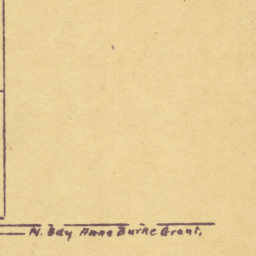 N. bdy Anna Burke Grant,